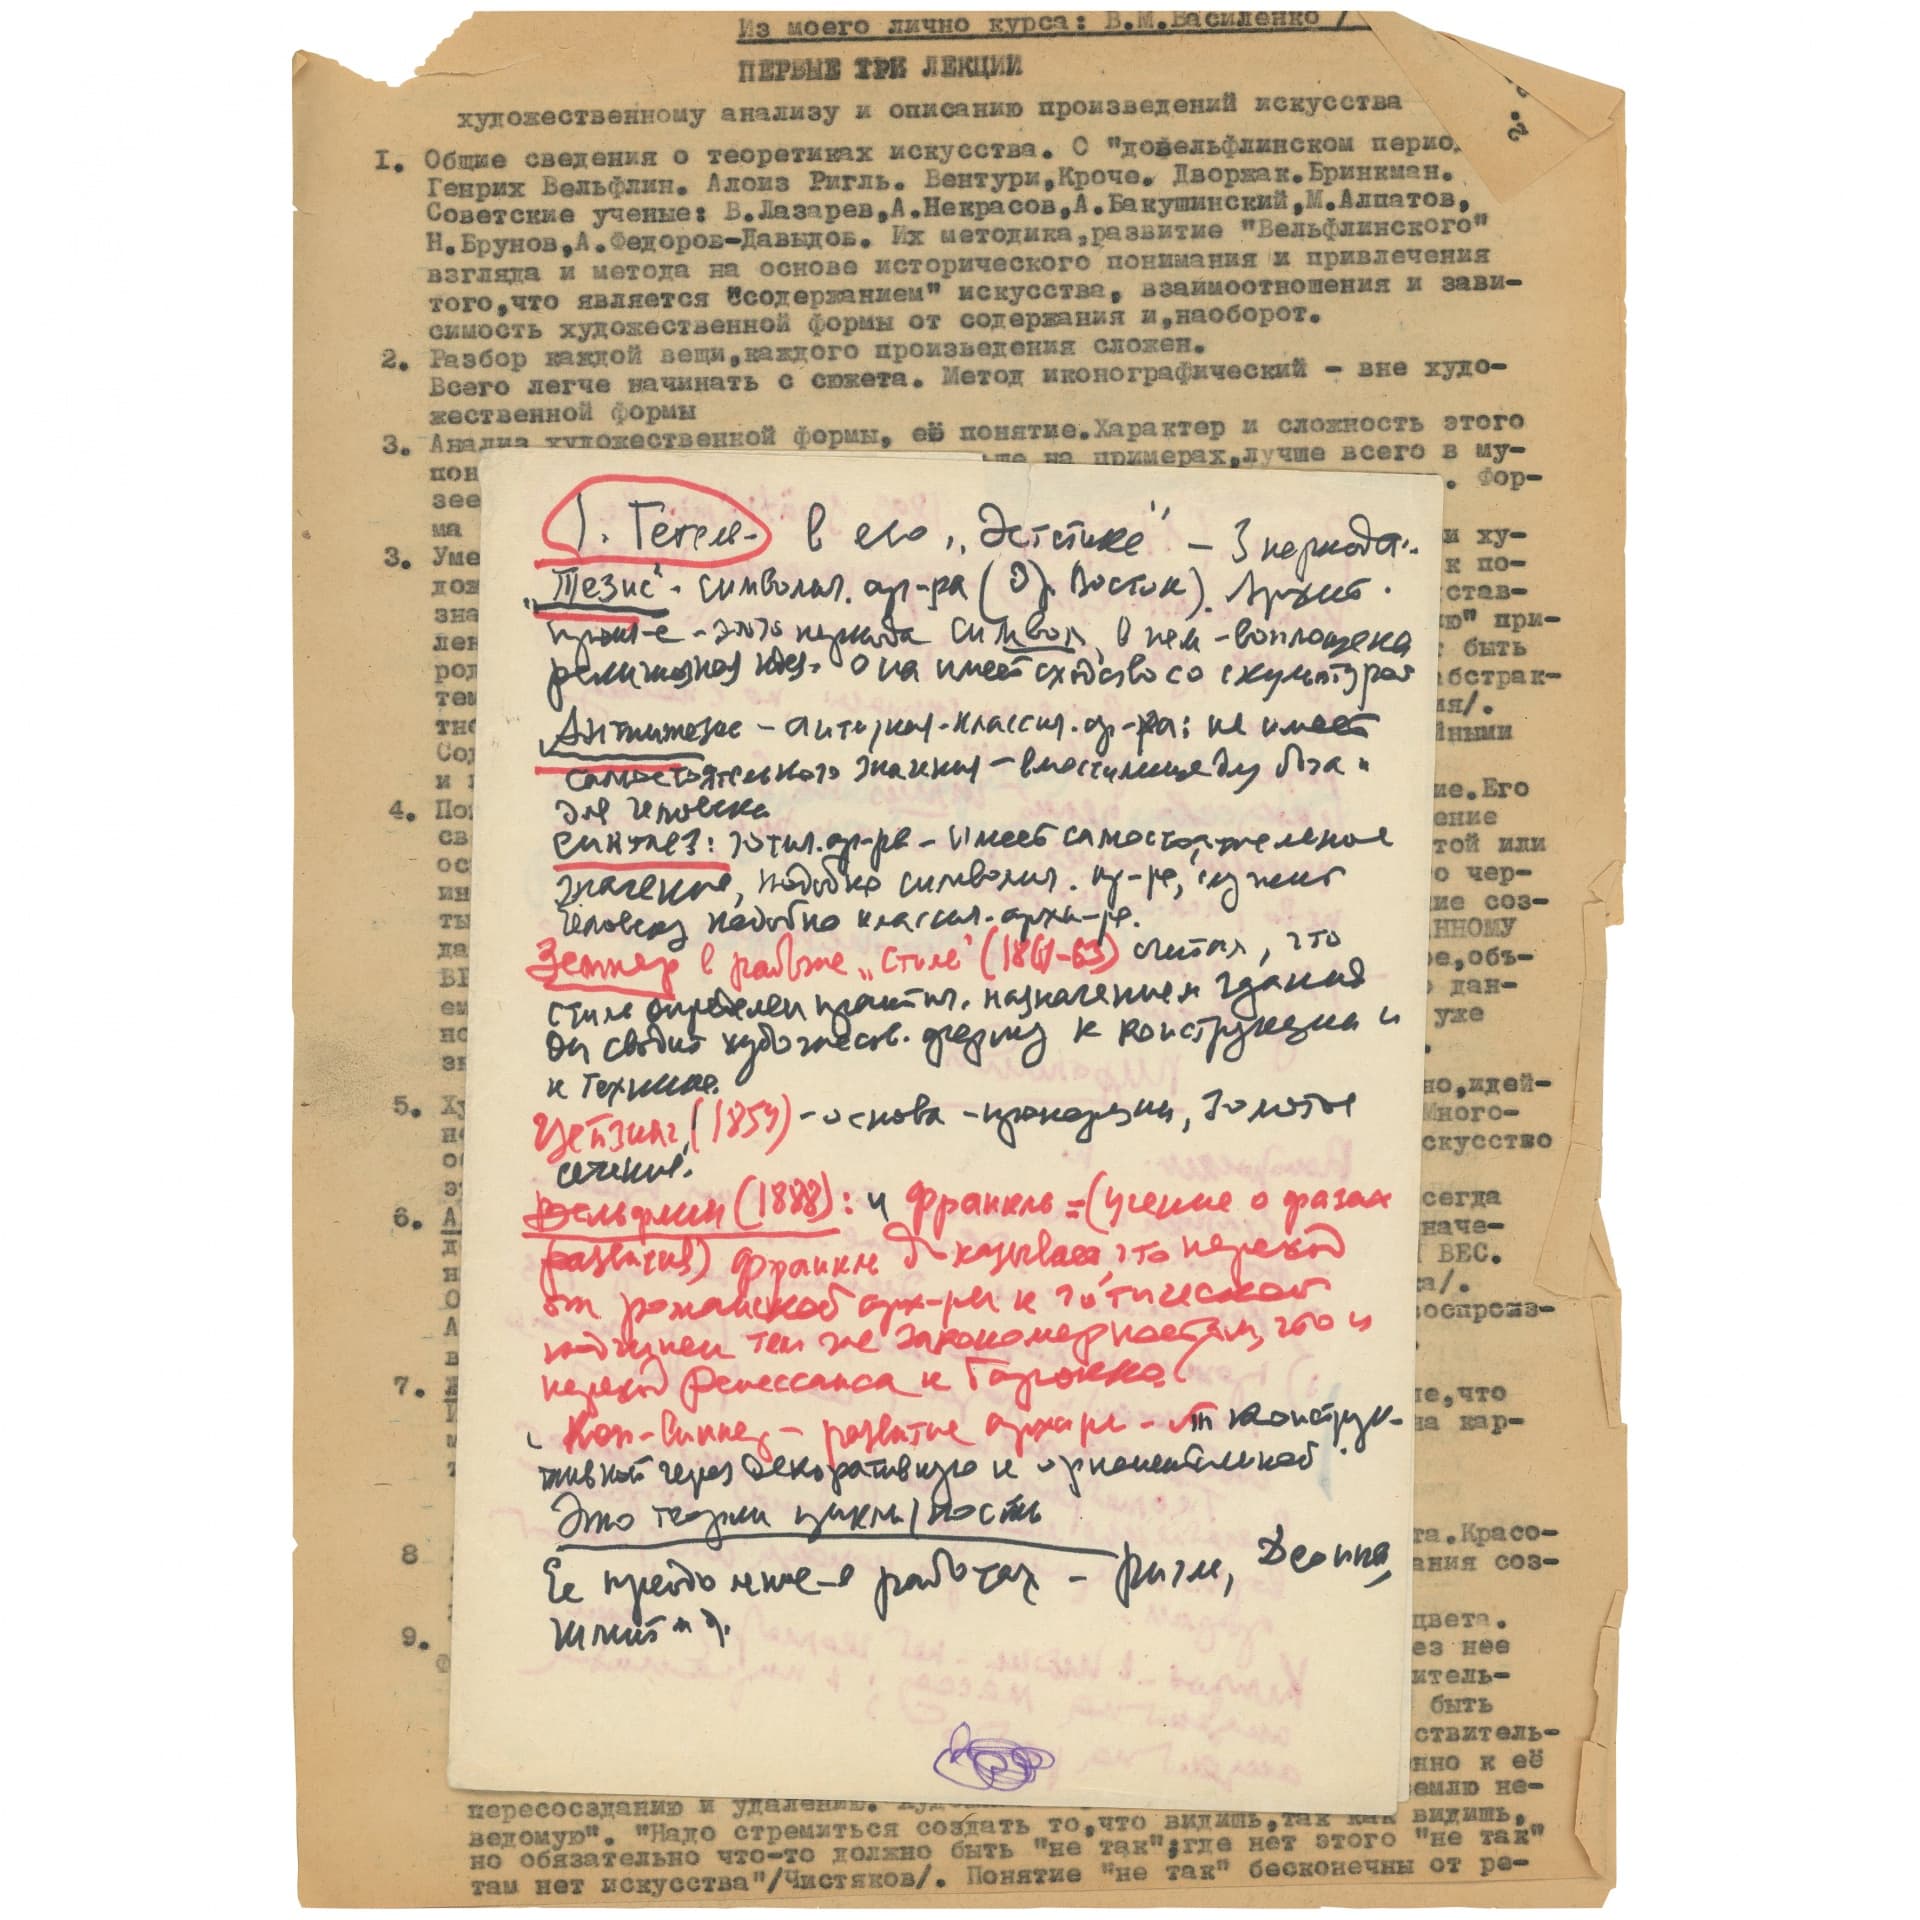 Из моего лично курса: В.М.Василенко /
ПЕРВЫЕ ТРИ ЛЕКЦИИ
художественному анализу и описанию произведений искусства
2.
I. Общие сведения о теоретиках искусства. О "довельфлинском период
Генрих Вельфлин. Алоиз Ригль. Вентури,Кроче. Дворжак.Бринкман.
Советские ученые: В.Лазарев,А.Некрасов,А.Бакушинский,М.Алпатов,
Н.Брунов,А.Федоров-Давыдов. Их методика,развитие "Вельфлинского"
взгляда и метода на основе исторического понимания и привлечения
того,что является "содержанием" искусства, взаимоотношения и зави-
симость художественной формы от содержания и,наоборот.
2. Разбор каждой вещи,каждого произведения сложен.
Всего легче начинать с сюжета. Метод иконографический - вне худо-
жественной формы
3. Анализ художественной формы, её понятие.Характер и сложность этого
пон ше на примерах,лучше всего в му-
зее . Фор-
ма и ху-
3. Уме к по-
дож став-
зна ю" при-
лен т быть
род абстрак-
тем ия/.
тно йными
Сод
и
4. Пон ие.Его
св ение
ос той или
ин о чер-
ты ие соз-
да ННОМУ
ВР ре,объ-
ем о дан-
но уже
зн
5. Ху но,идей-
Много-
скусство
6. А сегда
наче-
ВЕС.
а/.
воспроиз-
7. ие,что
на кар-
8 та.Красо-
ания соз-
9. цвета.
ез нее
итель-
быть
ствитель-
нно к её
емлю не-
1. Гегель в его „Эстетике" – 3 периода:
„Тезис" - символич. ар-ра (Др. Восток). Архит.
произ-е - этого периода символ, в нем - воплощена
религиозная идея. Она имеет сходство со скульптурой
Антитезис - античная-классич. ар-ра: не имеет
самостоятельного значения - вместилище для бога и
для человека
Синтез: готич. ар-ра - имеет самостоятельное
значение, подобно символич. ар-ре, служит
человеку подобно классич. архи-ре.
Земпер в работе „Стиль" (1861-63) считал, что
стиль определен практич. назначением здания
Он сводит художеств. форму к конструкции и
к технике.
Цейзинг, (1854) - основа - пропорции, золотое
сечение.
Вельфлин (1888): и Франкль = (учение о фазах
развития) Франкль доказывает, что переход
от романской арх-ры к готической
подчинен тем же закономерностям, что и
переход Ренессанса к Барокко.
Кон-Винер - развитие архи-ры - от конструк-
тивной через декоративную к орнаментальной.
Это теории цикличности
Ее продолжение в работах - Ригль,
Шмит и др.
пересозданию и удалению.
ведомую". "Надо стремиться создать то,что видишь,так как видишь,
но обязательно что-то должно быть "не так";где нет этого "не так"
там нет искусства"/Чистяков/. Понятие "не так" бесконечны от ре-